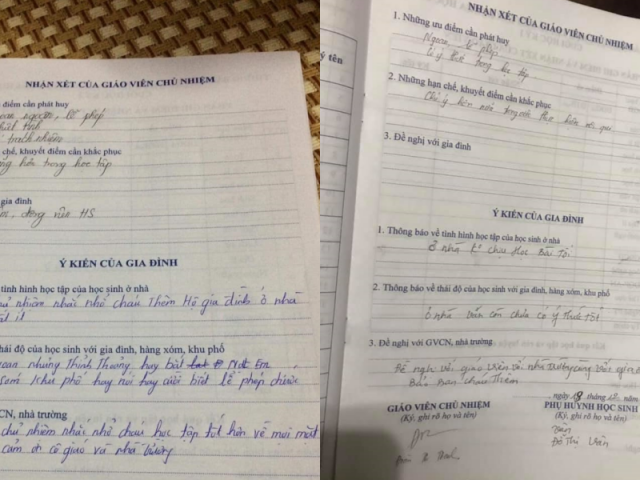 NHẬN XÉT CỦA GIÁO VIÊN CHỦ NHIỆM
điểm cần phát huy
ngoan, lễ phép
nhiệt tình
trách nhiệm
chế, khuyết điểm cần khắc phục
hơn trong học tập
gia đình
động viên HS
Ý KIẾN CỦA GIA ĐÌNH
tình hình học tập của học sinh ở nhà
nhiệm nhắc nhở cháu Thêm Hộ gia đình ở nhà
ít
thái độ của học sinh với gia đình, hàng xóm, khu phố
ngoan nhưng Thỉnh Thoảng hay bắt nạt Em
xóm khu phố hay nói hay cười biết lễ phép
CN, nhà trường
chủ nhiệm nhắc nhở cháu học tập tốt hơn về mọi mặt
cảm ơn cô giáo và nhà trường
ý tên
NHẬN XÉT CỦA GIÁO VIÊN CHỦ NHIỆM
1. Những ưu điểm cần phát huy
Ngoan, lễ phép
Có ý thức trong học tập
2. Những hạn chế, khuyết điểm cần khắc phục
Chú ý
3. Đề nghị với gia đình
Ý KIẾN CỦA GIA ĐÌNH
1. Thông báo về tình hình học tập của học sinh ở nhà
Ở nhà K chịu Học Bài Tối
2. Thông báo về thái độ của học sinh với gia đình, hàng xóm, khu phố
Ở nhà vẫn còn chưa có ý thức Tốt
3. Đề nghị với GVCN, nhà trường
Đề nghị với giáo viên và nhà trường cùng với gia đình
Bảo ban cháu Thêm
ngày 18 tháng năm
GIÁO VIÊN CHỦ NHIỆM
PHỤ HUYNH HỌC SINH
(Ký, ghi rõ họ và tên)
(Ký, ghi rõ họ và tên)
Vân
Đỗ Thị Vân